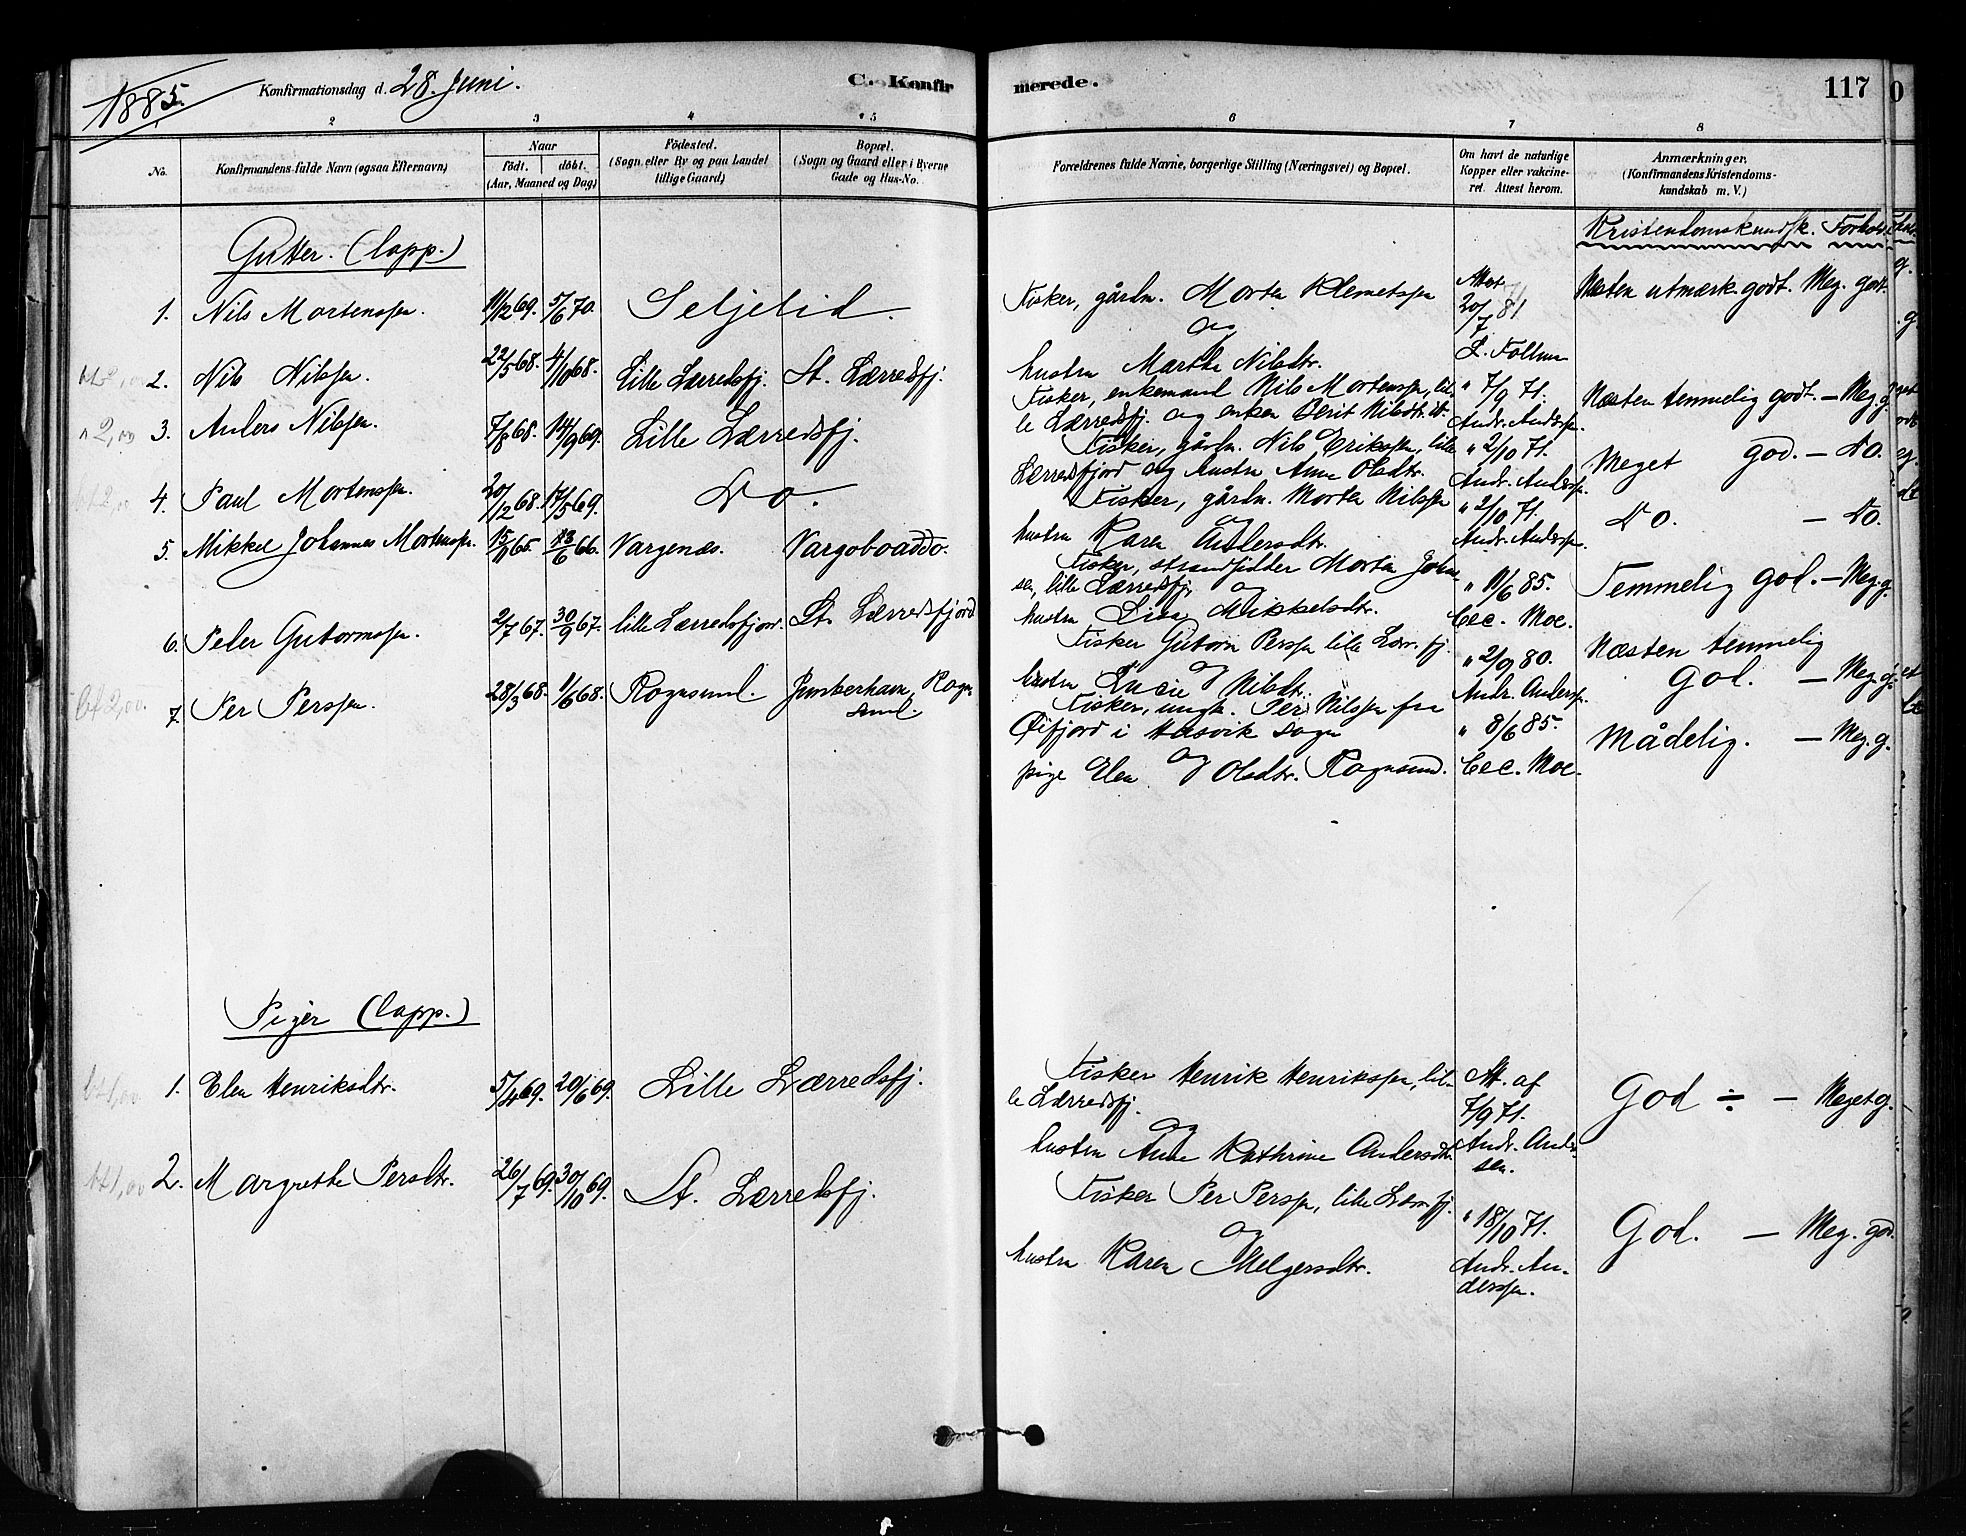 1885.
Konfirmationsdag d. 28. Juni.
C. Konfirmerede.
117
2 3 4 5 6 7 8
No.
Konfirmandens fulde Navn (ogsaa Efternavn)
Naar
födt. döbt.
(Aar, Maaned og Dag)
Födested.
(Sogn eller By og paa Landet
tillige Gaard)
Bopæl.
(Sogn og Gaard eller i Byerne
Gade og Hus-No.
Forældrenes fulde Navne, borgerlige Stilling (Næringsvei) og Bopæl.
Om havt de naturlige
Kopper eller vakcine-
ret. Attest herom.
Anmærkninger.
(Konfirmandens Kristendoms-
kundskab m. V.)
Kristendomskundsk. Forhold
Gutter. (lapp.)
1. Nils Mortenssen. 11/12 69. 5/6 70. Seljelid.
Fisker, gårdm. Morten Klemetssen
og
hustru Marthe Nilsdtr.
Attest
20/7 81
L. Follum
Næsten utmærk. godt. Meg. godt.
2. Nils Nilssen. 22/5 68. 4/10 68. Lille Lærredsfj. St. Lærredsfj.
Fisker, enkemand Nils Mortenssen, lil-
le Lærredsfj. og enken Berit Nilsdtr. st.
" 7/9 71.
Andr. Anderssen.
Næsten temmelig godt. — Meg. g.
3. Anders Nilssen. 7/8 68. 14/9 69. Lille Lærredsfj.
Fisker, gårdm. Nils Erikssen, lille
Lærredsfjord og hustru Anne Olsdtr.
" 2/10 71.
Andr. Anderssen.
Meget god. — do.
4. Paul Mortenssen. 20/12 68. 17/5 69. Do.
Fisker, gårdm. Morten Nilssen
og
hustru Karen Andersdtr.
" 2/10 71.
Andr. Anderssen.
Do. — do.
5. Mikkel Johannes Mortenssen. 15/9 65. 13/6 66. Vargenæs. Vargoboaddo.
Fisker, strandsidder Morten Johns-
sen, lille Lærredsfj. og
hustru Lisa Mikkelsdtr.
" 11/6 85.
Cec. Moe.
Temmelig god. — Meg. g.
6. Peder Gutormssen. 2/7 67. 30/9 67. lille Lærredsfjord. St. Lærredsfjord
Fisker Gutorm Perssen lille Lærr. fj.
og
hustru Lucie Nilsdtr.
" 2/9 80.
Andr. Anderssen.
Næsten temmelig
God. — Meg. g.
bt 2,00. 7. Per Perssen. 28/3 68. 1/6 68. Rognsund. Junkerhavn, Rogn
sund.
Fisker, ungk. Per Nilssen fra
Øifjord i Hasvik sogn
og
pige Elen Olsdtr. Rognsund.
" 8/6 85.
Cec. Moe.
Mådelig. — Meg. g.
Piger (lapp.)
bt 1,00. 1. Elen Henriksdtr. 5/4 69. 20/6 69. Lille Lærredsfj.
Fisker Henrik Henrikssen, lil-
le Lærredsfj.
og
hustru Anne Kathrine Andersdtr.
Att. af
7/9 71.
Andr. Ander-
sen.
God ÷ — Meget g.
bt 1,00 2. Margrethe Persdtr. 26/7 69. 30/10 69. St. Lærredsfj.
Fisker Per Perssen, lille Lærr. fj.
og
hustru Karen Melgersdtr.
" 18/10 71.
Andr. An-
derssen.
God. — Meg. god.